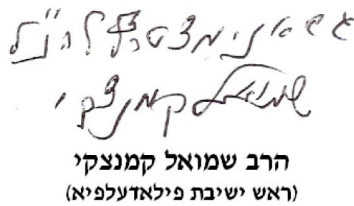 גם אני מצטרף להנ"ל
שמואל קמנצקי
הרב שמואל קמנצקי
(ראש ישיבת פילאדעלפיא)